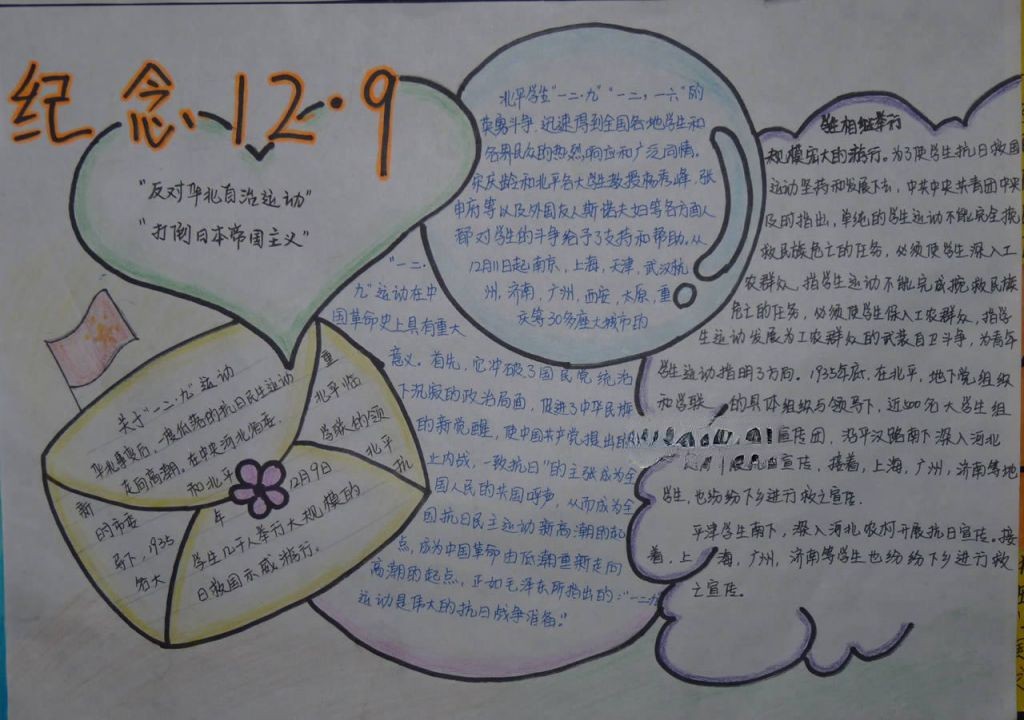 纪念12·9
"反对华北自治运动"
"打倒日本帝国主义"
关于"一二·九"运动
华北事变后,一度低落的抗日民主运动
走向高潮,在中央河北省委
和北平
年
新
的市委
导下,1935
名大
重
北平临
学联的领
北平
抗
12月9日
学生几千人举行大规模的
日救国示威游行。
北平学生"一二·九""一二,一六"的
英勇斗争,迅速得到全国各地学生和
各界民众的热烈响应和广泛同情。
宋庆龄和北平各大学生教授杨秀峰,张
申府等以及外国友人斯诺夫妇等各方面人
都对学生的斗争给予了支持和帮助。从
12月11日起,南京,上海,天津,武汉杭
州,济南,广州,西安,太原,重
庆等30多座大城市的
"一二·
九"运动在中
国革命史上具有重大
意义。首先,它冲破了国民党统治
下沉寂的政治局面,促进了中华民族
的新觉醒,使中国共产党提出的
止内战,一致抗日"的主张成为全
国人民的共同呼声,从而成为全
国抗日民主运动新高潮的起
点,成为中国革命由低潮重新走向
高潮的起点,正如毛泽东所指出的:"一二九
运动是伟大的抗日战争准备。"
学生相继举行
规模宏大的游行。为了使学生抗日救国
运动坚持和发展下去,中共中央共青团中央
及时指出,单纯的学生运动不能完全挽
救民族危亡的任务,必须使学生深入工
农群众,指学生运动不能完成挽救民族
危亡的任务,必须使学生深入工农群众,指学
生运动发展为工农群众的武装自卫斗争,为青年
学生运动指明了方向。1935年底,在北平,地下党组织
和学联的具体组织与领导下,近500名大学生组
宣传团,沿平汉路南下深入河北
宣传,接着,上海,广州,济南等地
学生,也纷纷下乡进行救亡宣传。
平津学生南下,深入河北农村开展抗日宣传。接
着,上海,广州,济南等学生也纷纷下乡进行救
亡宣传。